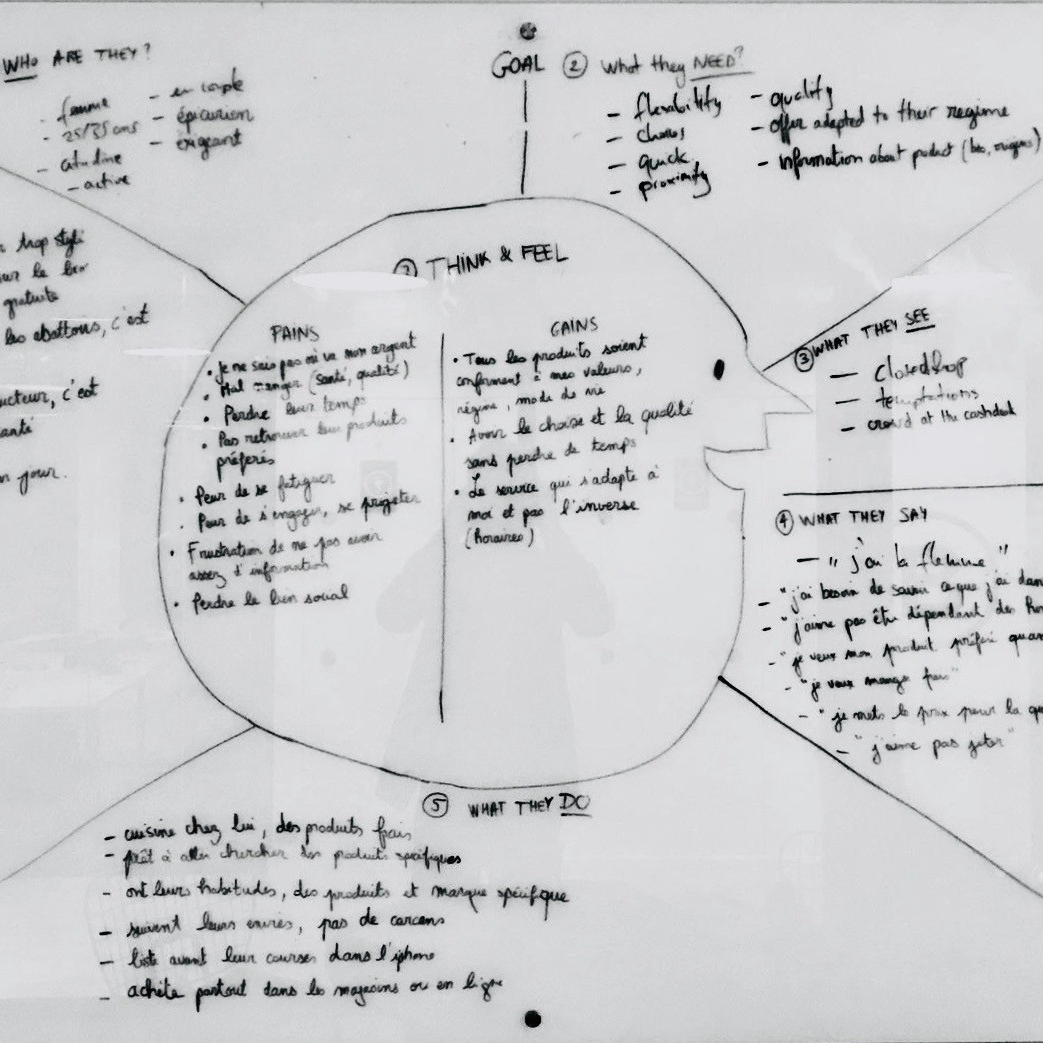 WHO ARE THEY?
- femme
- 25/35 ans
- citadine
- active
- en couple
- épicurien
- exigeant
GOAL
② What they NEED?
- flexability
- choices
- quick
- proximity
- quality
- offer adapted to their regime
- information about product (bio, origins)
trop stylé
sur le bio
gratuite
les abattous, c'est
ucteur, c'est
santé
n jour.
THINK & FEEL
PAINS
• Je ne sais pas où va mon argent
• Mal manger (santé, qualité)
• Perdre leur temps
• Pas retrouver leur produits
préférés
• Peur de se fatiguer
• Peur de s'engager, se projeter
• Frustration de ne pas avoir
assez d'information
• Perdre le lien social
GAINS
• Tous les produits soient
conforment à mes valeurs,
régime, mode de vie
• Avoir le choix et la qualité
sans perdre de temps
• Le service qui s'adapte à
moi et pas l'inverse
(horaires)
③ WHAT THEY SEE
- closed shop
- temptations
- crowd at the cashdesk
④ WHAT THEY SAY
- "j'ai la flemme"
- "j'ai besoin de savoir ce que j'ai dan
- "j'aime pas être dépendant des ho
- "je veux mon produit préféré quan
- "je veux manger frais"
- "je mets le prix pour la qu
- "j'aime pas jeter"
⑤ WHAT THEY DO
- cuisine chez lui, des produits frais
- prêt à aller chercher des produits spécifiques
- ont leurs habitudes, des produits et marque spécifique
- suivent leurs envies, pas de carcans
- liste avant leur courses dans l'iphone
- achète partout dans les magasins ou en ligne